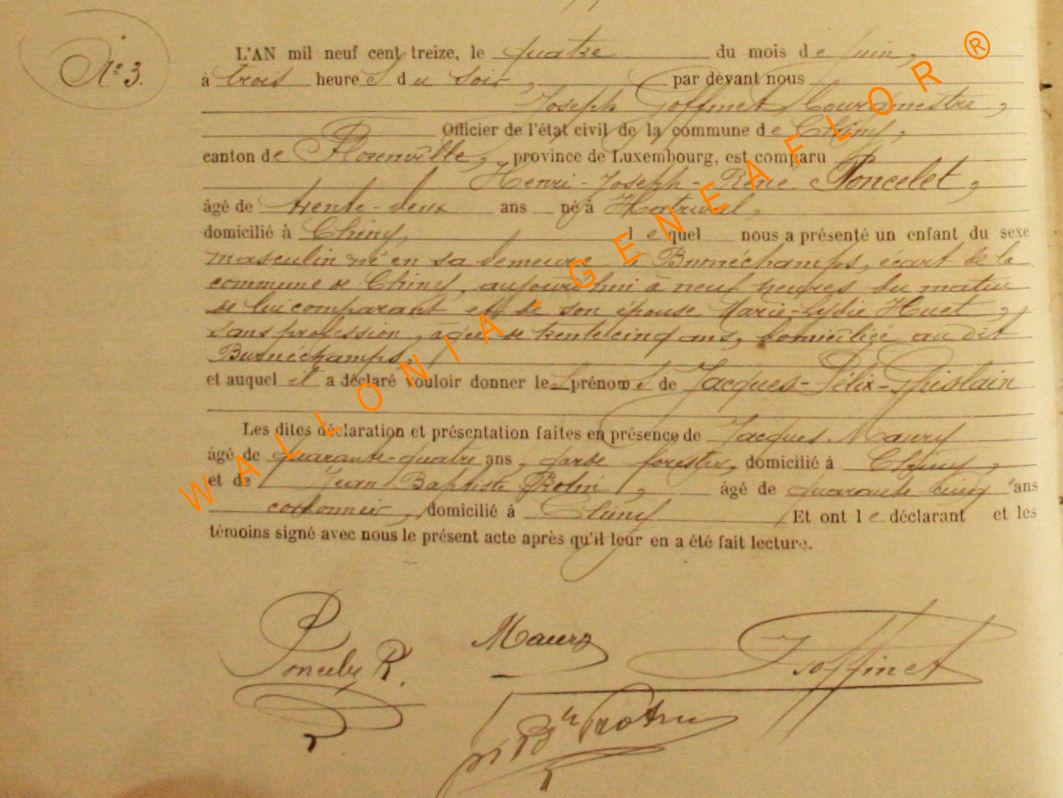 N° 3.
L'AN mil neuf cent treize, le quatre du mois de juin,
à trois heures du soir, par devant nous
Joseph Goffinet, Bourgmestre,
Officier de l'état civil de la commune de Chiny,
canton de Florenville, province de Luxembourg, est comparu
Henri-Joseph-René Poncelet,
âgé de trente-deux ans né à Hatrival,
domicilié à Chiny, lequel nous a présenté un enfant du sexe
masculin né en sa demeure à Burnéchamps, écart de la
commune de Chiny, aujourd'hui à neuf heures du matin
de lui comparant et de son épouse Marie-Lydie Huet,
sans profession, âgée de trente cinq ans, domiciliée au dit
Burnéchamps,
et auquel il a déclaré vouloir donner les prénoms de Jacques-Félix-Ghislain
Les dites déclaration et présentation faites en présence de Jacques Maury
âgé de quarante-quatre ans, garde forestier, domicilié à Chiny,
et de Jean Baptiste Protin, âgé de quarante cinq ans
cordonnier, domicilié à Chiny Et ont le déclarant et les
témoins signé avec nous le présent acte après qu'il leur en a été fait lecture.
Poncelet R. Maury J Goffinet
Bte Protin
WALLONIA - GENEAFLOR ®